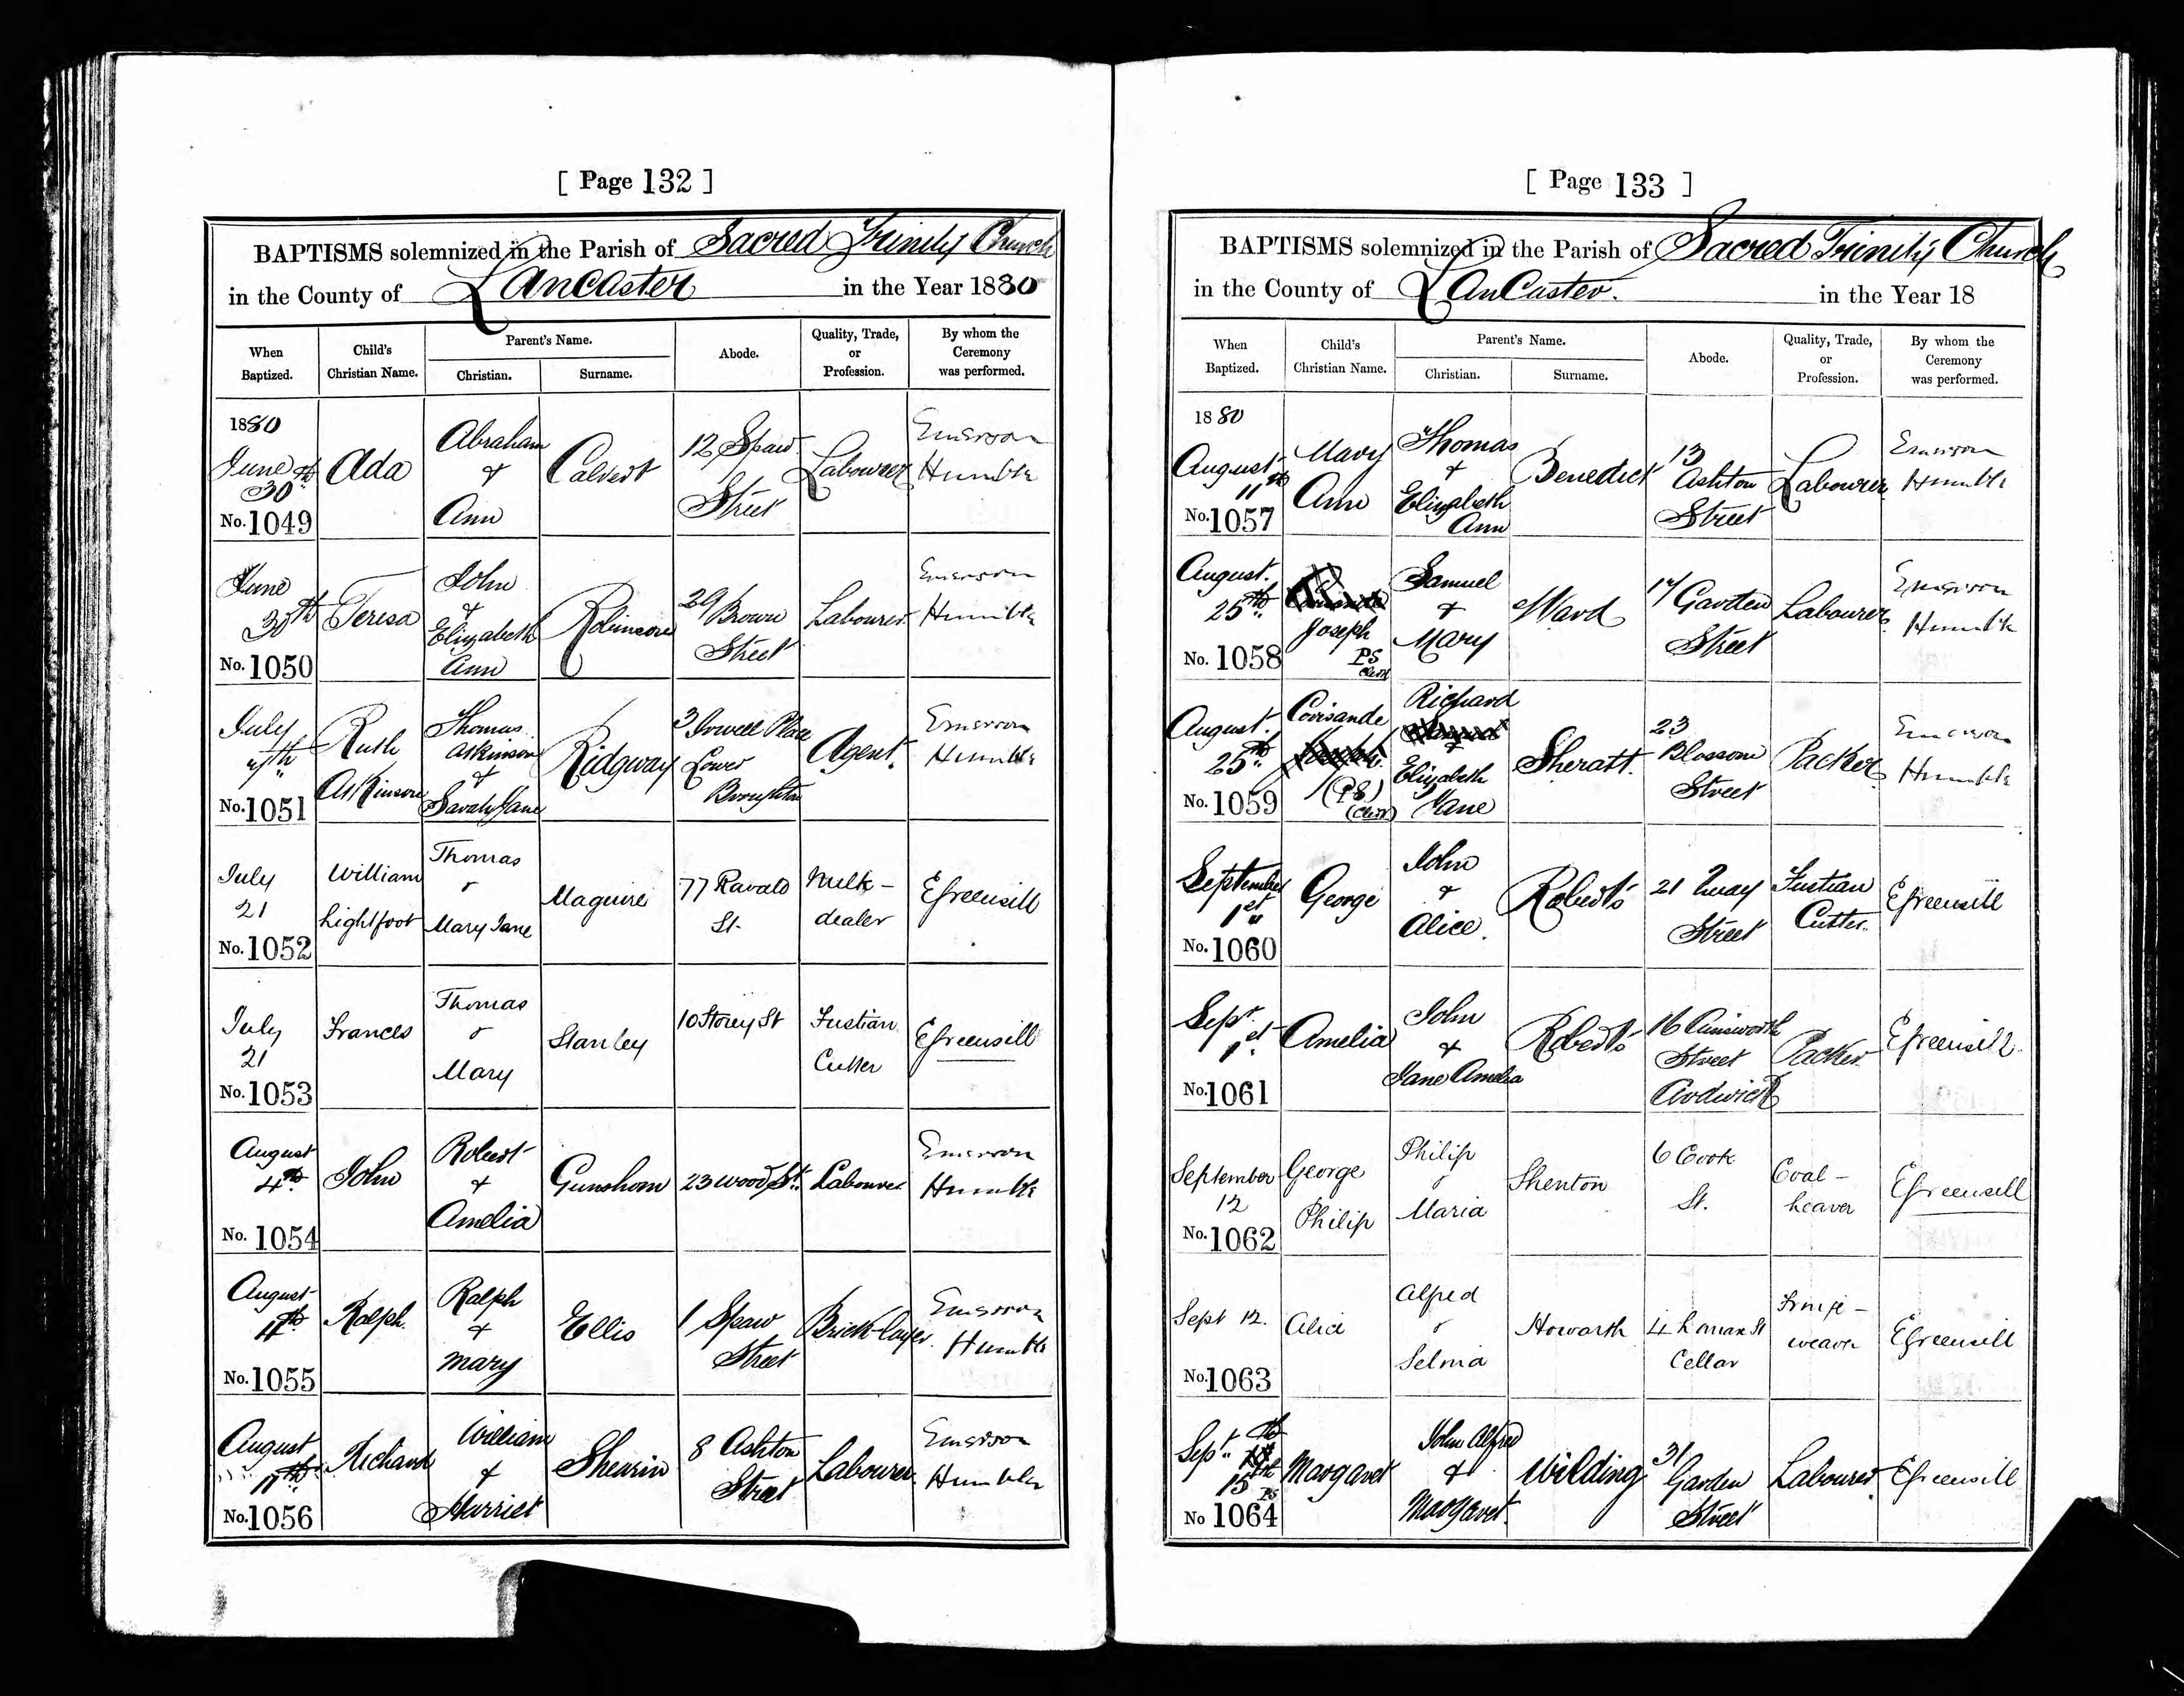 [ Page 132 ]
BAPTISMS solemnized in the Parish of Sacred Trinity Church
in the County of Lancaster in the Year 1880
When Baptized. Child's Christian Name. Parent's Name. Christian. Surname. Abode. Quality, Trade, or Profession. By whom the Ceremony was performed.
1880
June 30th Ada Abraham & Ann Calvert 12 Spaw Street Labourer Emerson Humble
No. 1049
June 30th Teresa John & Elizabeth Ann Robinson 29 Brown Street Labourer Emerson Humble
No. 1050
July 7th Ruth Atkinson Thomas Atkinson & Sarah Jane Ridgway 3 Irwell Place Lower Broughton Agent. Emerson Humble
No. 1051
July 21 William Lightfoot Thomas & Mary Jane Maguire 77 Ravald St. Milk-dealer EGreensill
No. 1052
July 21 Frances Thomas & Mary Stanley 10 Storey St Fustian Cutter EGreensill
No. 1053
August 4th John Robert & Amelia Gunshom 23 Wood St. Labourer Emerson Humble
No. 1054
August 11th Ralph. Ralph & Mary Ellis 1 Spaw Street Brick-layer. Emerson Humble
No. 1055
August 11th Richard William & Harriet Shearin 8 Ashton Street Labourer. Emerson Humble
No. 1056
[ Page 133 ]
BAPTISMS solemnized in the Parish of Sacred Trinity Church
in the County of Lancaster. in the Year 18
When Baptized. Child's Christian Name. Parent's Name. Christian. Surname. Abode. Quality, Trade, or Profession. By whom the Ceremony was performed.
1880
August 11th Mary Ann Thomas & Elizabeth Ann Benedict 13 Ashton Street Labourer Emerson Humble
No. 1057
August. 25th Joseph PS Clerk Samuel & Mary Ward 17 Garden Street Labourer Emerson Humble
No. 1058
August. 25th Corisande (PS) (Clerk) Richard & Elizabeth Jane Sheratt. 23 Blossom Street Packer Emerson Humble
No. 1059
September 1st George John & Alice. Roberts 21 Quay Street Fustian Cutter. EGreensill
No. 1060
Sept. 1st Amelia John & Jane Amelia Roberts 16 Ainsworth Street Ardwick Packer EGreensill.
No. 1061
September 12 George Philip Philip & Maria Shenton 6 Cook St. Coal-heaver EGreensill
No. 1062
Sept 12. Alice Alfred & Selma Howarth 4 Lomax St Cellar Fringe-weaver EGreensill
No. 1063
Sept. 15th PS Margaret John Alfred & Margaret. Wilding 31 Garden Street Labourer. EGreensill
No 1064